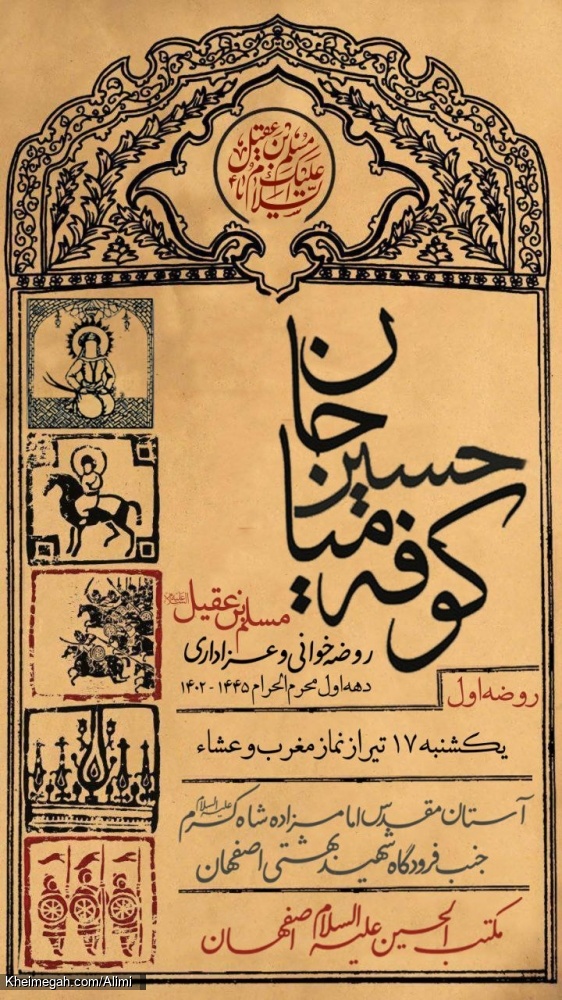 السلام علیک یا مسلم بن عقیل
حسین جان
کوفه میا
مسلم بن عقیل علیه‌السلام
روضه خوانی و عزاداری
دهه اول محرم الحرام ۱۴۴۵ - ۱۴۰۲
روضه اول
یکشنبه ۱۷ تیر از نماز مغرب و عشاء
آستان مقدس امامزاده شاه کرم علیه السلام
جنب فرودگاه شهید بهشتی اصفهان
مکتب الحسین علیه السلام اصفهان
Kheimegah.com/Alimi